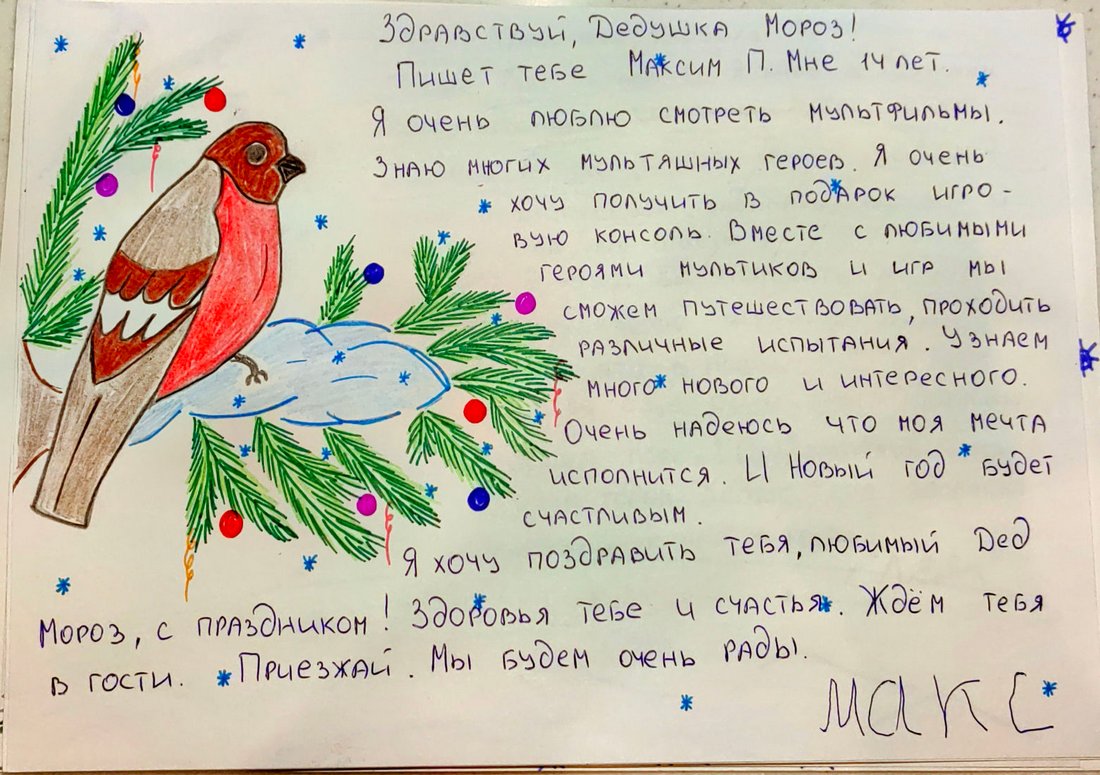 Здравствуй, Дедушка Мороз!
Пишет тебе Максим П. Мне 14 лет.
Я очень люблю смотреть мультфильмы.
Знаю многих мультяшных героев. Я очень
хочу получить в подарок игро-
вую консоль. Вместе с любимыми
героями мультиков и игр мы
сможем путешествовать, проходить
различные испытания. Узнаем
много нового и интересного.
Очень надеюсь что моя мечта
исполнится. И Новый год будет
счастливым.
Я хочу поздравить тебя, любимый Дед
Мороз, с праздником! Здоровья тебе и счастья. Ждём тебя
в гости. Приезжай. Мы будем очень рады.
Макс